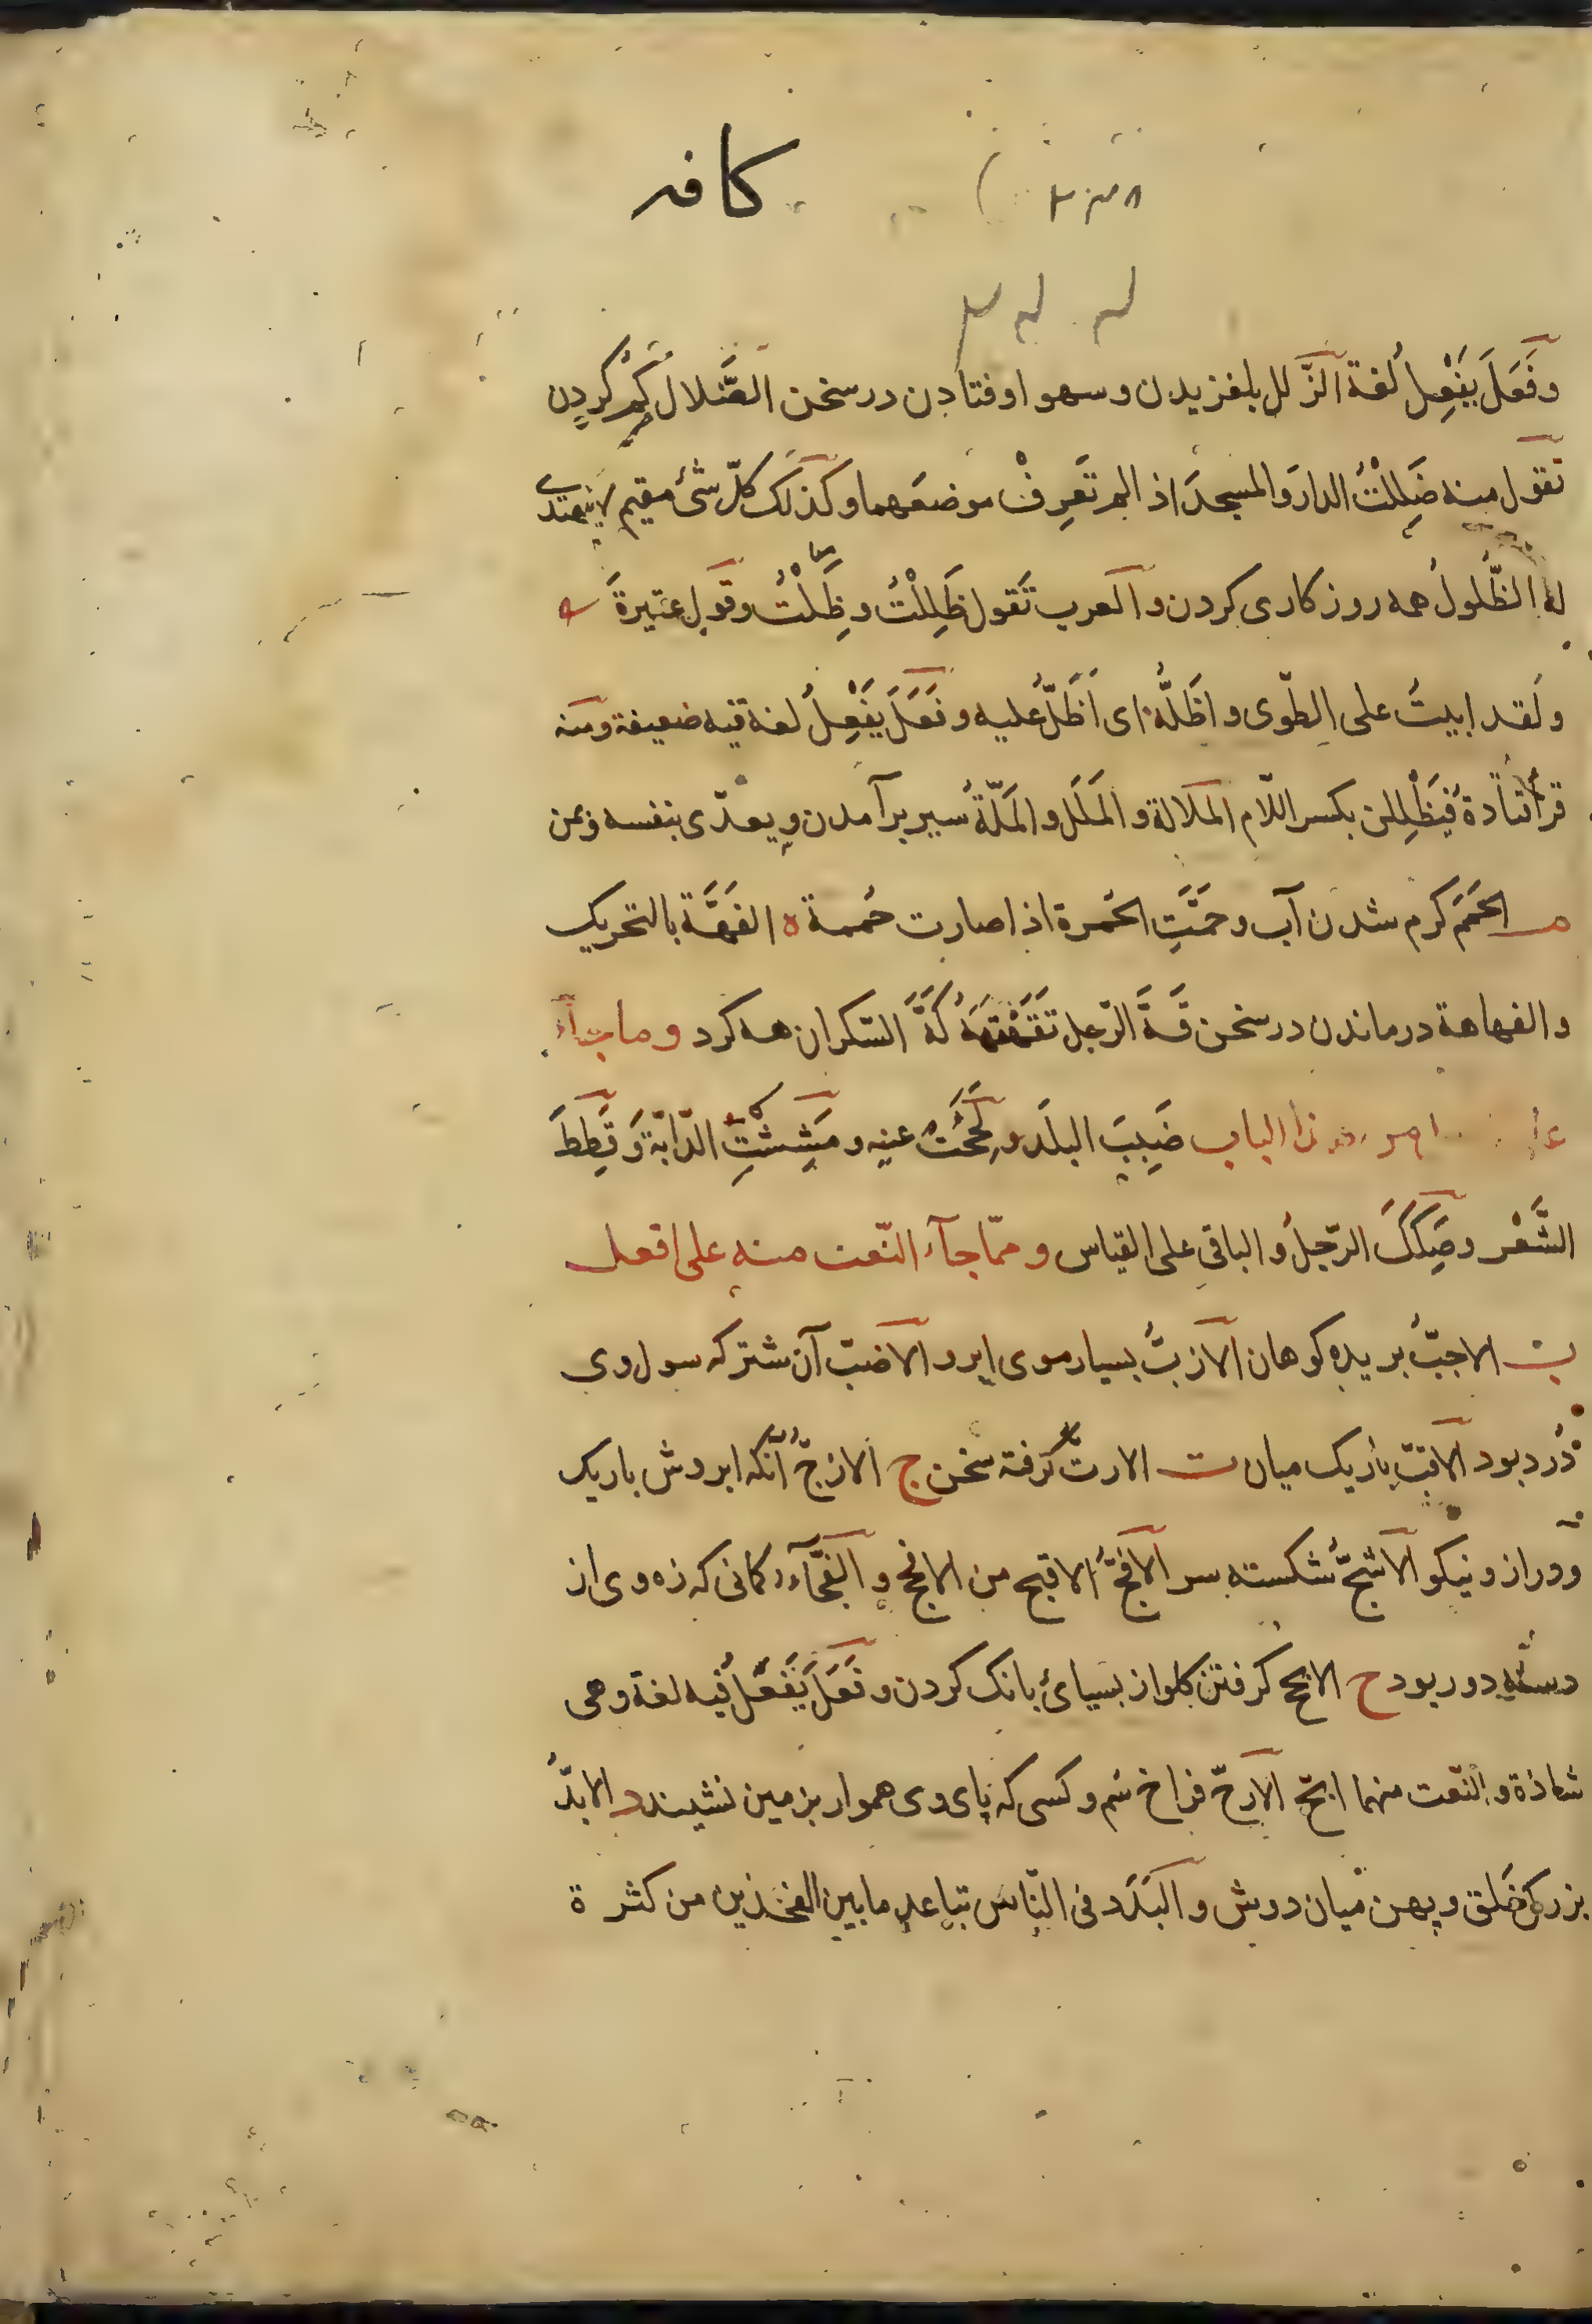 کافه
وفَعَلَ یَفْعِلُ لُغة الزَّلل بلغزیدن وسهو اوفتادن در سخن الضَّلال کم کردن
تقول منه ضَلِلْتُ الدارَ والمسجدَ اذ الم تَعرِفْ موضعَهما وکذلک کلّ شئ مقیم لا یهتدی
له الظُّلولُ همه روز کاری کردن والعرب تَقول ظَلِلْتُ وظَِلْتُ وقول عتیرةَ
ولَقد ابیتُ علی الطّوی واظَلُّهُ ای اَظَلُّ علیه وفَعَلَ یَفْعِلُ لغة فیه ضعیفة ومنه
قرأ قتادة فَیَظْلِلن بکسر اللّام المَلالة والمَلَل والمَلّةُ سیر برآمدن ویعدّی بنفسه وبمن
م الحَمَمَ کرم شدن آب وحَمَّتِ الحُمرة اذا صارت حُممة ه الفَهَّة بالتحریک
والفهاهة درماندن در سخن فَهَّ الرّجل تفَهَّهَ کَهَّ السّکران هه کرد وما جآء
الباب ضَبِبَ البلَد ولَحِحَتْ عینه ومَشِشَتِ الدّابّة وَقَطِطَ
الشَّعْر وصَکِکَ الرّجلُ والباقی علی القیاس وممّا جآء النّعت منه علی افعل
ب الاجبّ بریده کوهان الازبُّ بسیار موی ابرو الاضبّ آن شتر که سول وی
دُرد بود الاقبّ باریک میان ت الارتّ کرفته سخن ج الازجّ آنکه ابروش باریک
ودراز ونیکو الاشجّ شکسته سر الافجّ الاقبح من الافحج والفجّآء کمانی که زه وی از
دسته دور بود ح الابحّ کرفتن کلو از بسیائ بانک کردن وفَعَلَ یَفْعَلُ فیه لغة وهی
شاذة والنّعت منهما ابحّ الارحّ فراخ سُم وکسی که پای وی هموار بزمین نشیند د الابدُّ
بزرک خلق وپهن میان دوش والبَدَد فی النّاس تباعد ما بین الفخذین من کثرة